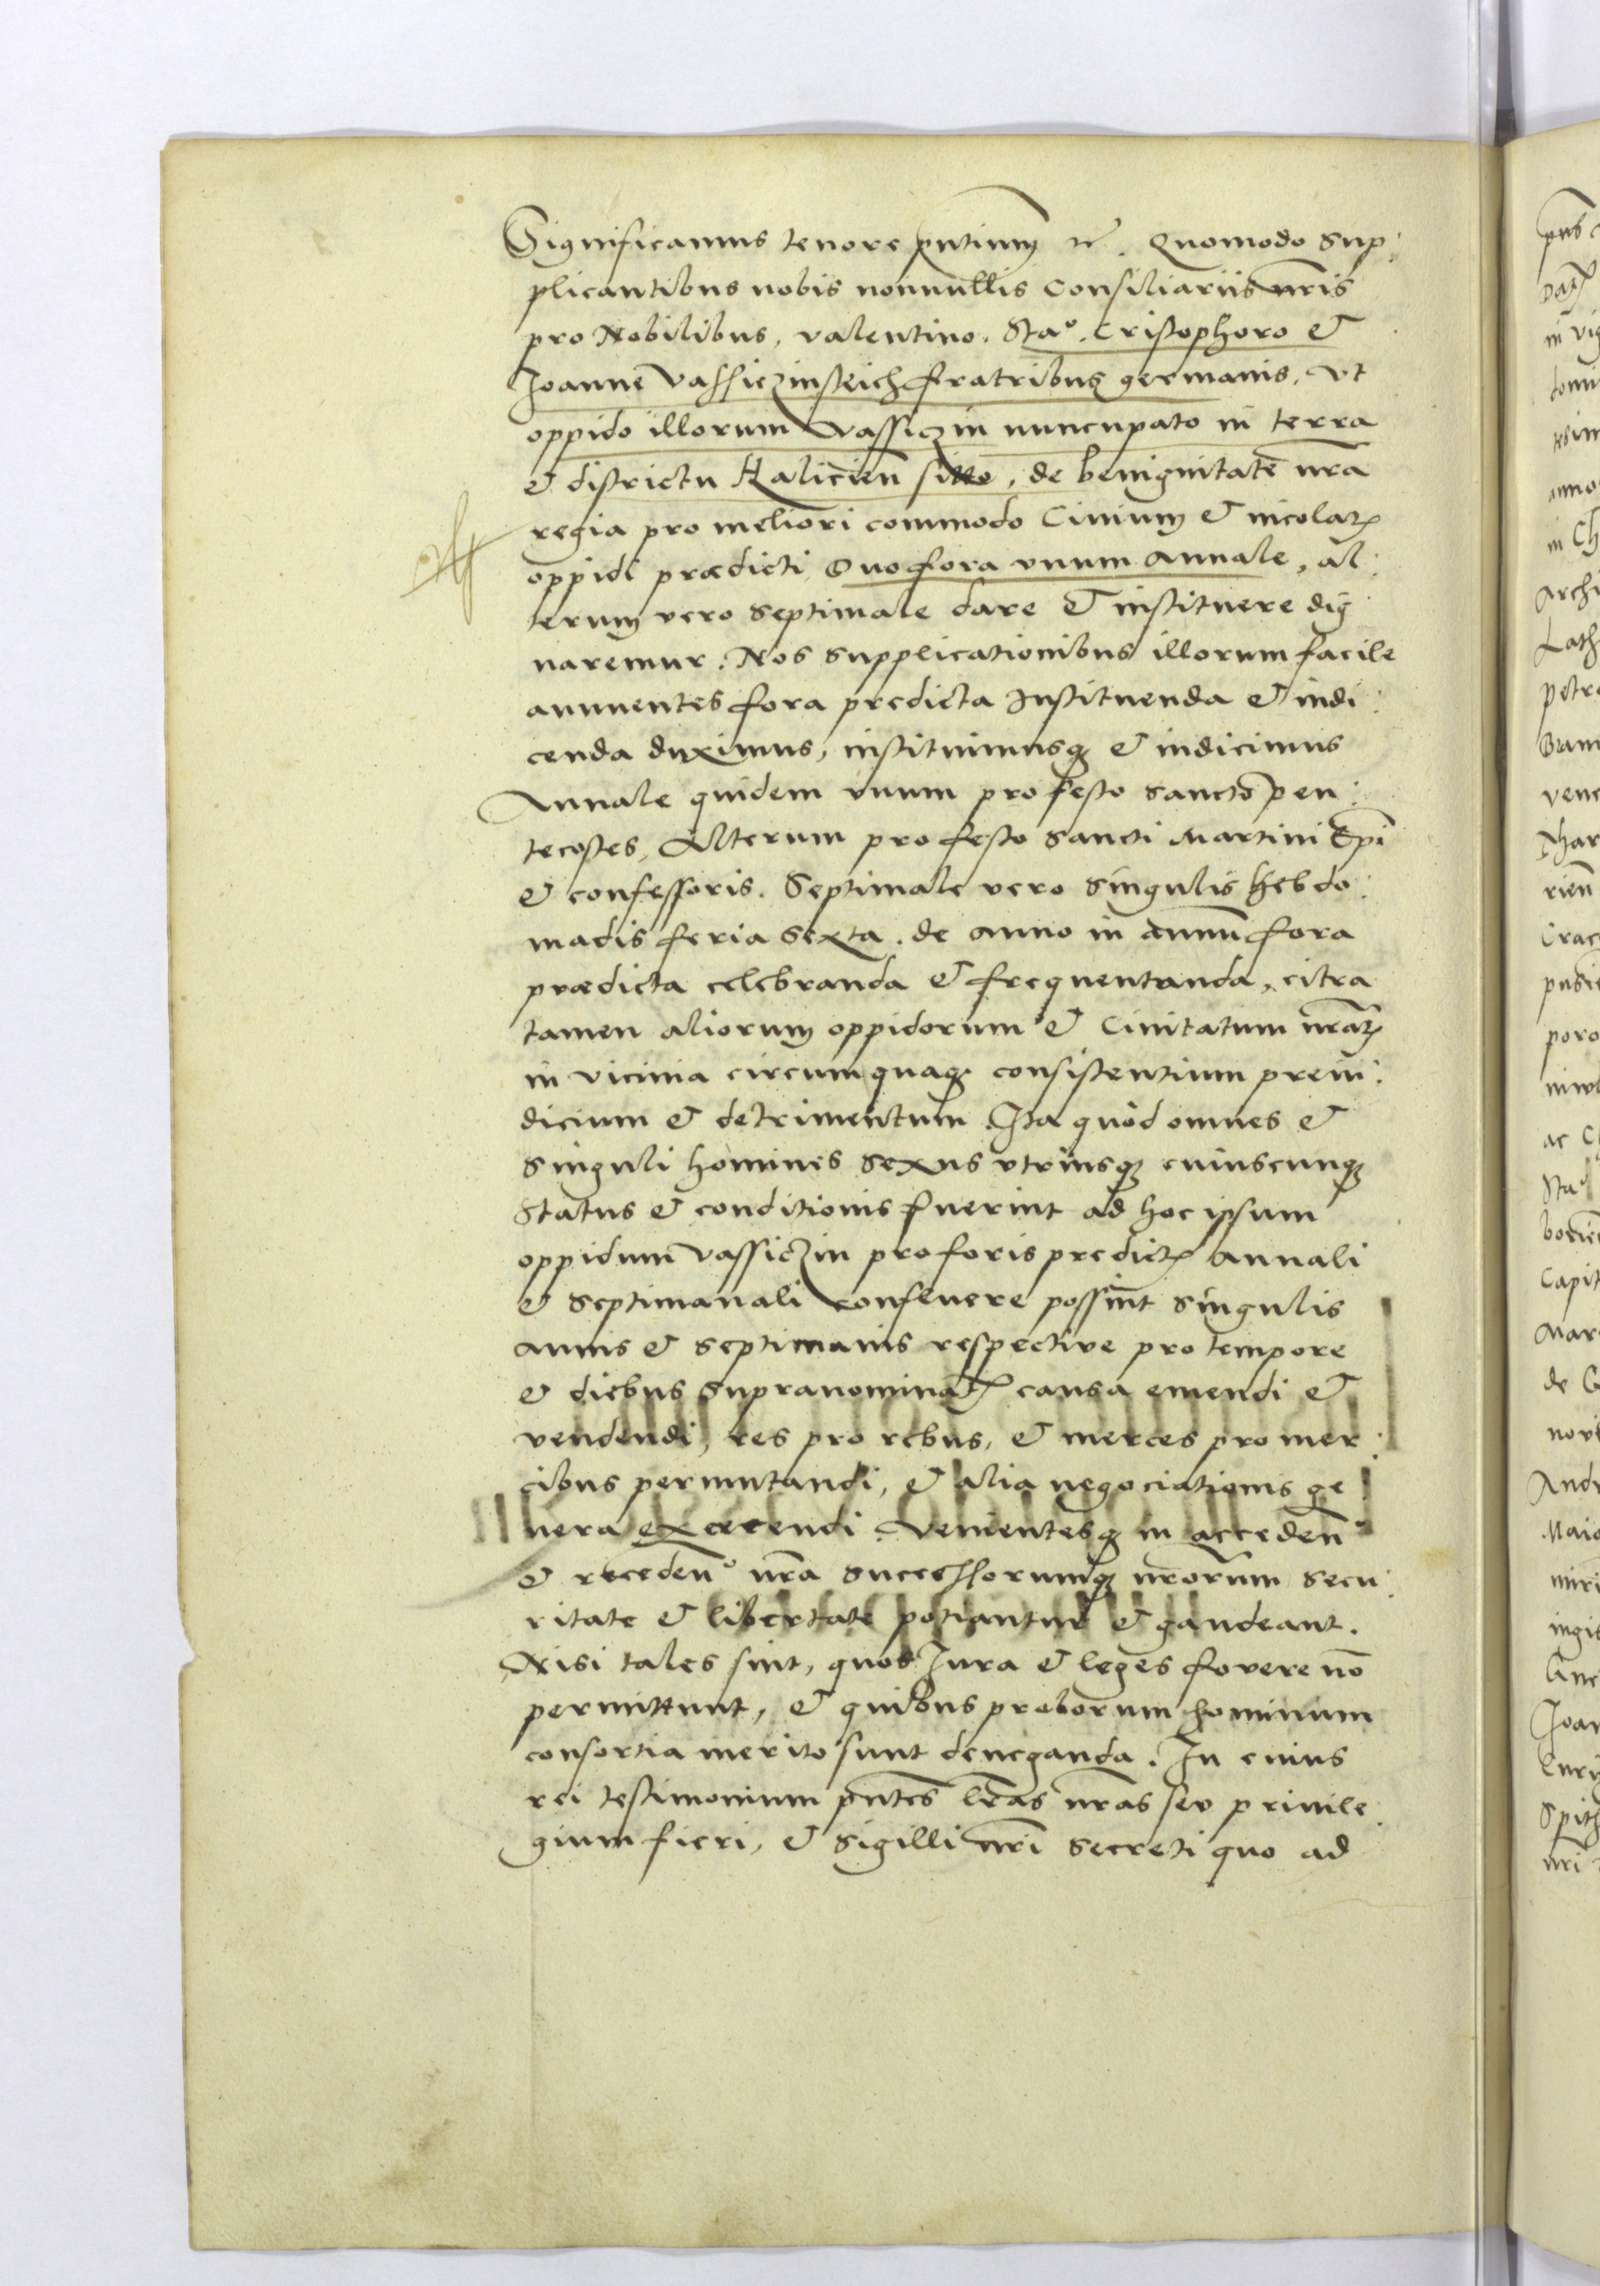 Significamus tenore pntium etc. Quomodo Sup:
plicantibus nobis nonnullis Consiliariis nris
pro Nobilibus, Valentino. Stao. Cristophoro &
Joanne Vassiczinskich fratribus germanis, vt
oppido illorum Vassiczin nuncupato in terra
& districtu Halicien sitto, de benignitate nra
regia pro meliori commodo Ciuium & incolarum
oppidi prædicti Duo fora vnum annale, al:
terum vero septimale dare & instituere dig
naremur. Nos supplicationibus illorum facile
annuentes fora predicta Instituenda & indi:
cenda duximus, instituimusq & indicimus
Annale quidem vnum pro festo sancto pen:
tecostes, Alterum pro festo Sancti Martini Epi
& confessoris. Septimale vero singulis hebdo:
madis feria sexta. de anno in annu fora
prædicta celebranda & frequentanda, citra
tamen aliorum oppidorum & Ciuitatum nrarum
in vicinia circumquaq consistentium preiu:
dicium & detrimentum. Ita quod omnes &
singuli homines sexus vtriusq cuiuscunq
status & conditionis fuerint ad hoc ipsum
oppidum Vassiczin pro foris predictis Annali
& septimanali confluere possint singulis
annis & septimanis respective pro tempore
& diebus supranominatis causa emendi &
vendendi, res pro rebus, & merces pro mer:
cibus permutandi, & alia negociationis ge
nera exercendi. Venientesq in acceden
& receden nra successorumq nrorum secu:
ritate & libertate potiantur & gaudeant.
Nisi tales sint, quos Jura & leges fovere no
permittunt, & quibus proborum hominum
consortia merito sunt deneganda. In cuius
rei testimonium pntes lras nras seu priuile:
gium fieri, & sigilli nri secreti quo ad